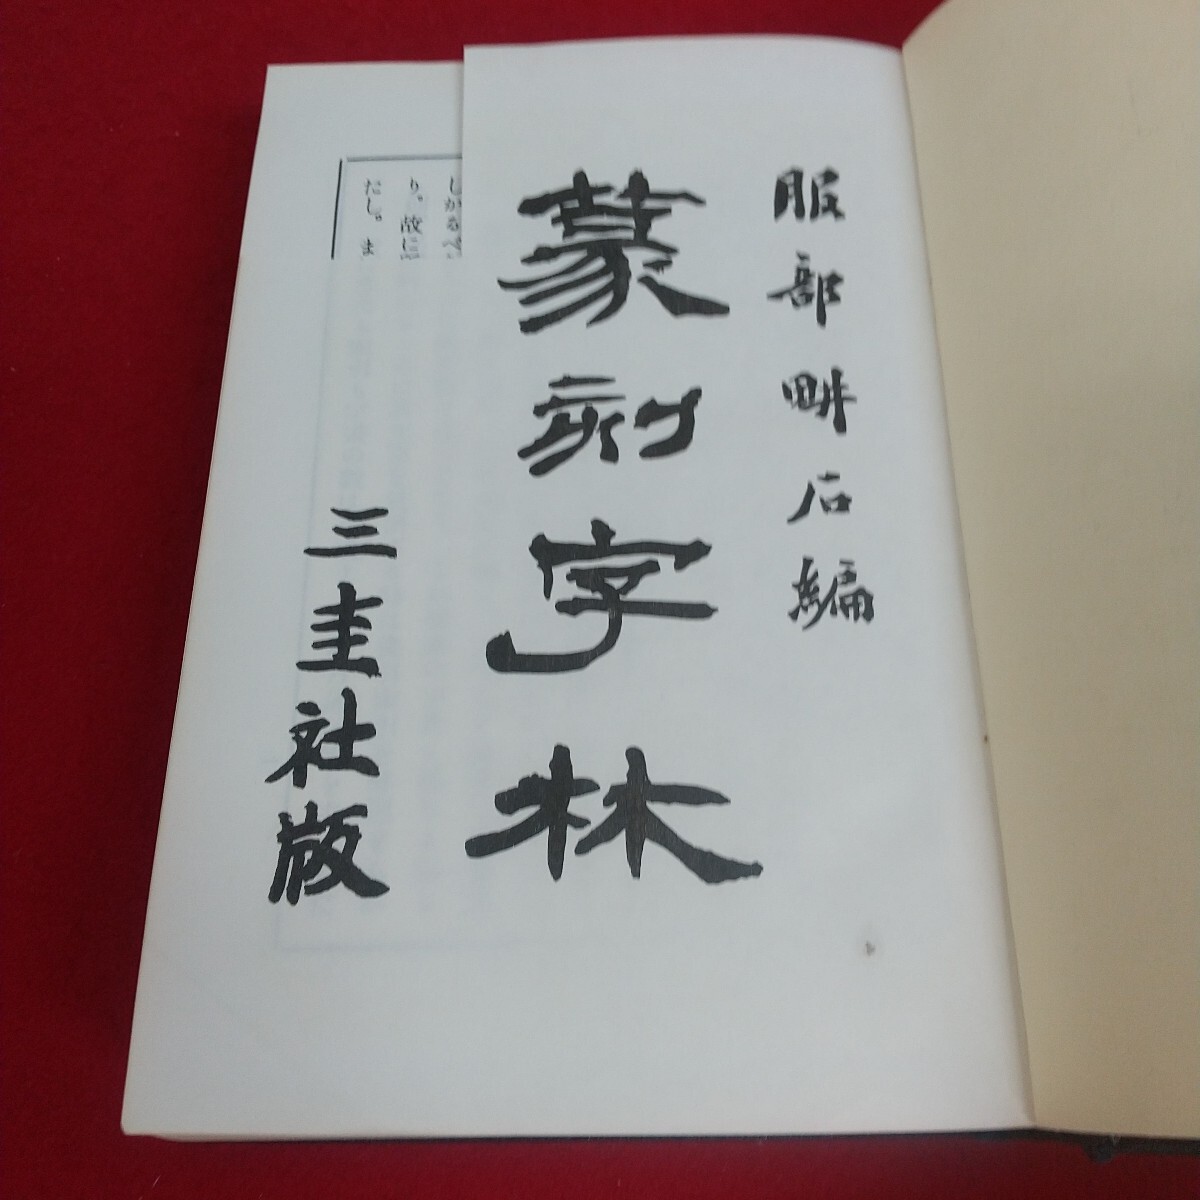 服部畊石編
篆刻字林
三圭社版
しかるべ
り。故に
だし。ま